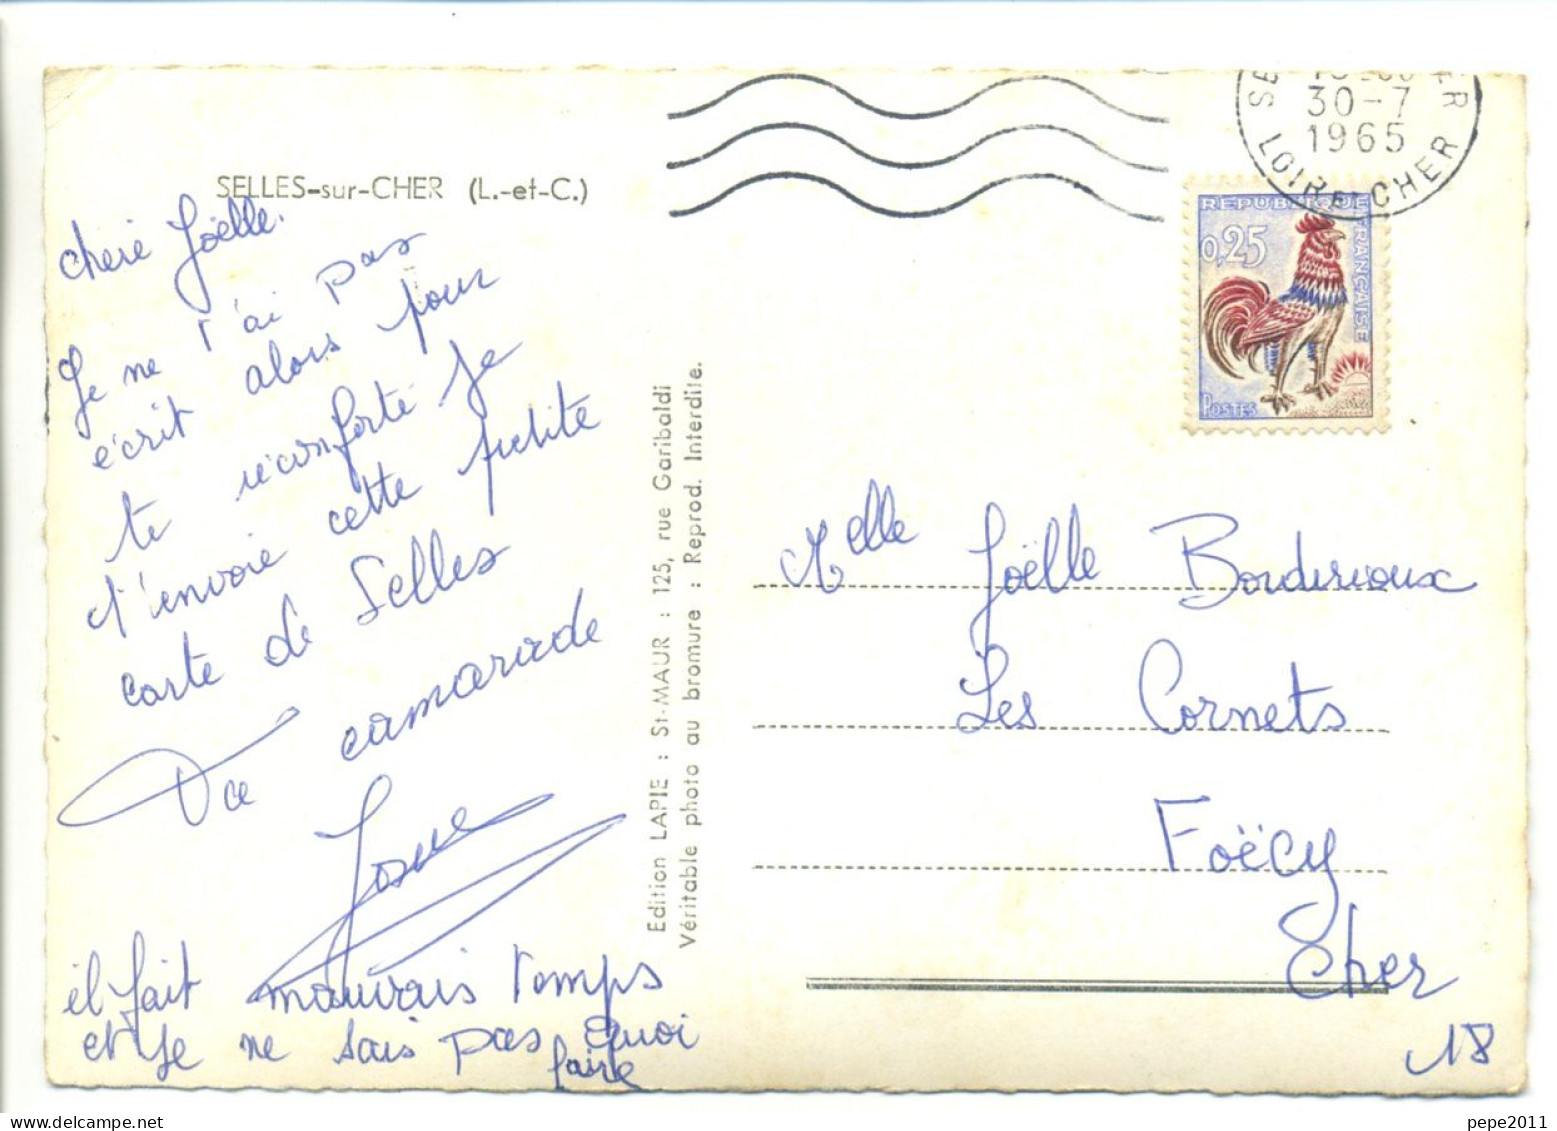 SELLES-sur-CHER (L.-et-C.)
cheré Joëlle.
Je ne t'ai pas
écrit alors pour
te réconforté Je
t'envoie cette petite
carte de Selles
Ta camarade
Josue
il fait mauvais temps
et je ne sais pas quoi
faire
Edition LAPIE : St-MAUR : 125, rue Garibaldi
Véritable photo au bromure : Reprod. Interdite.
30-7
1965
LOIR-CHER
REPUBLIQUE FRANÇAISE
0,25
POSTES
Melle Joëlle Bouderioux
Les Cornets
Foëcy
Cher
18
pepe2011